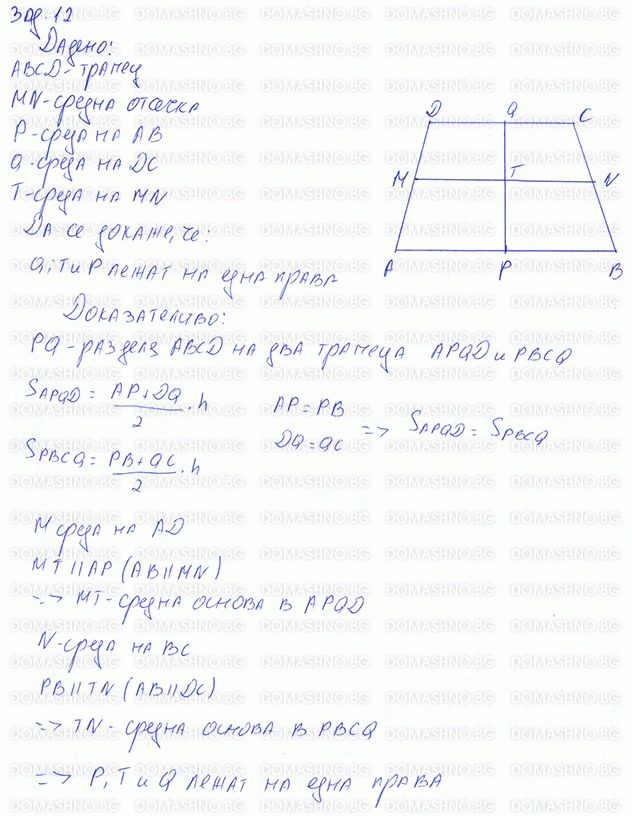 Зад. 12
Дадено:
ABCD - трапец
MN - средна отсечка
P - среда на AB
Q - среда на DC
T - среда на MN
Да се докаже, че:
Q; T и P лежат на една права
D Q C
M T N
A P B
Доказателство:
PQ - разделя ABCD на два трапеца APQD и PBCQ
S_APQD = (AP + DQ)/2 . h
AP = PB
DQ = QC
=> S_APQD = S_PBCQ
S_PBCQ = (PB + QC)/2 . h
M среда на AD
MT || AP (AB || MN)
=> MT - средна основа в APQD
N - среда на BC
PB || TN (AB || DC)
=> TN - средна основа в PBCQ
=> P, T и Q лежат на една права
DOMASHNO.BG